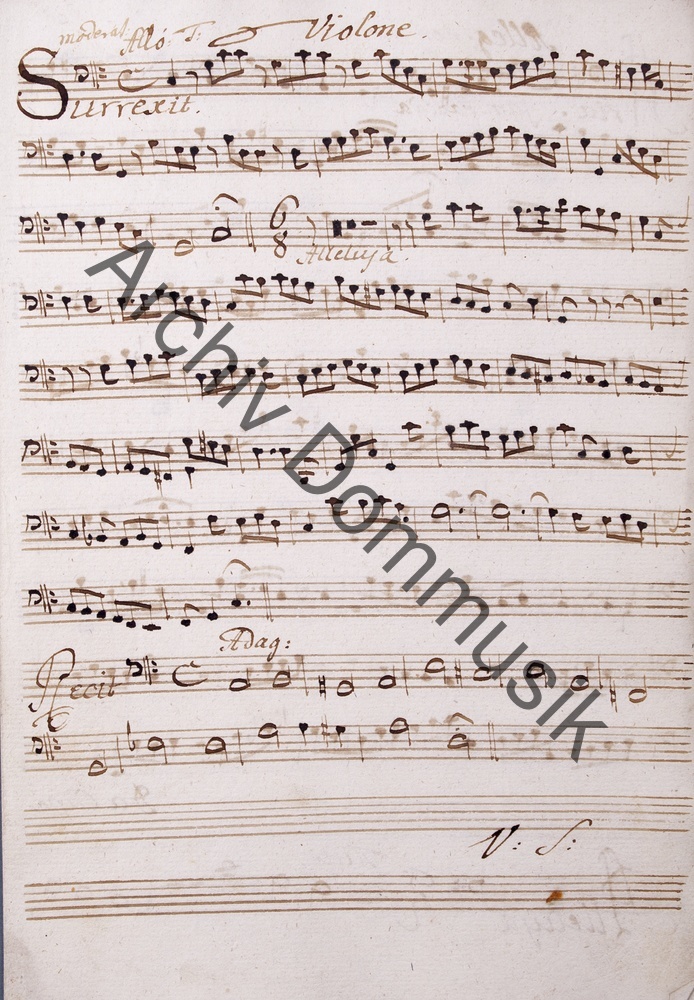 moderat Allo: T: Violone.
Surrexit.
6
8
Alleluja.
Adag:
Recit
V: S:
Archiv Dommusik